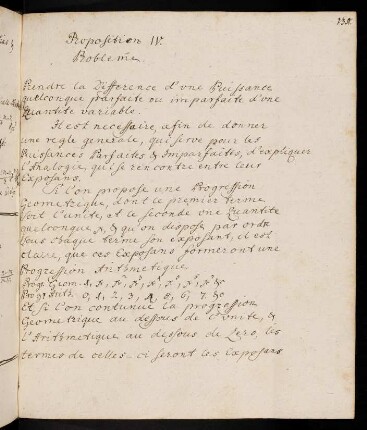 Proposition IV.
Problême.
Prendre la Difference d'vne Puissance
quelconque parfaite ou imparfaite d'une
Quantité variable.
Il est necessaire, afin de donner
une regle generale, qui serve pour les
Puissances Parfaites & Imparfaites, d'expliquer
l'Analogie, qui se rencontre entre leur
Exposans.
Si l'on propose une Progression
Geometrique, dont le premier terme
soit l'unité, et le second une Quantité
quelconque x, & qu'on dispose par ordre
sous chaque terme son exposant, il est
claire, que ces Exposans formeront une
Progression Arithmetique
Prog. Geom. 1, x, x², x³, x⁴, x⁵, x⁶, x⁷, &c
Prog. Arith. 0, 1, 2, 3, 4, 5, 6, 7, &c
Et si l'on continue la progression
Geometrique au dessous de l'Unité, &
l'Arithmetique au dessous de Zero, les
termes de celles-ci seront les Exposans